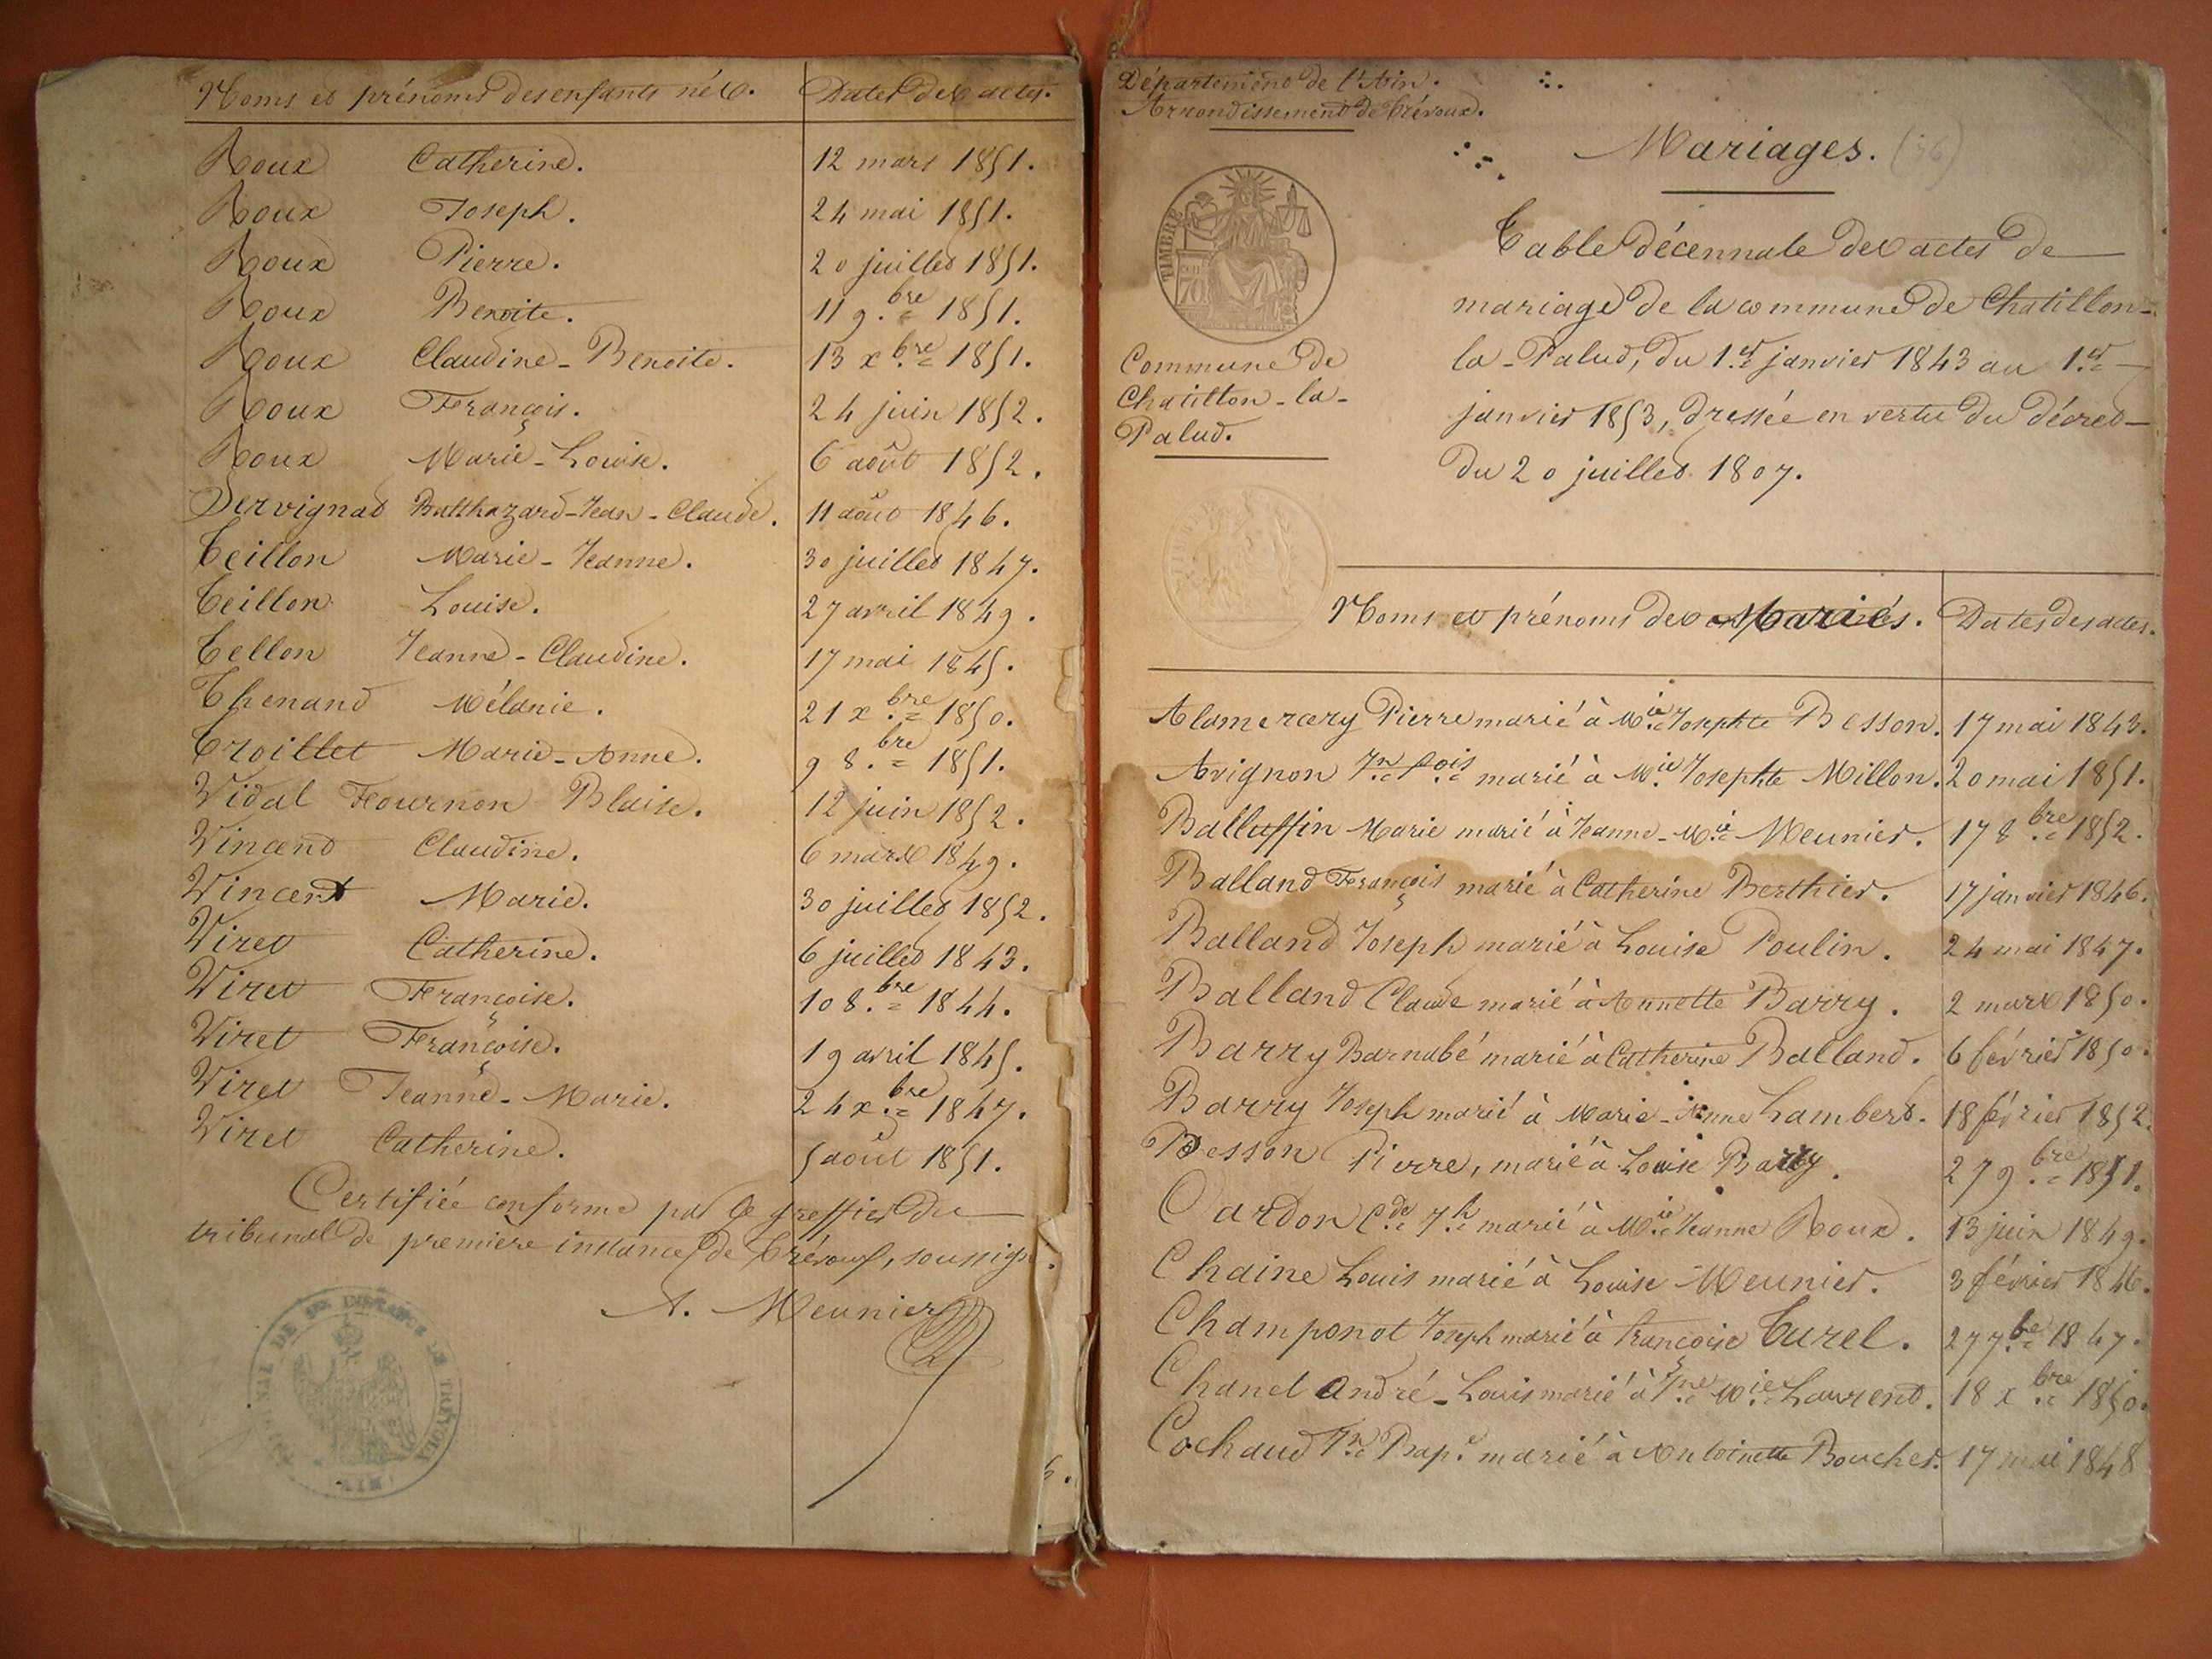 Noms et prénoms des enfants nés. Dates des actes.
Roux Catherine. 12 mars 1851.
Roux Joseph. 24 mai 1851.
Roux Pierre. 20 juillet 1851.
Roux Benoite. 11 9.bre 1851.
Roux Claudine-Benoite. 13 x.bre 1851.
Roux François. 24 juin 1852.
Roux Marie-Louise. 6 août 1852.
Servignat Balthazard-Jean-Claude. 11 août 1846.
Teillon Marie-Jeanne. 30 juillet 1847.
Teillon Louise. 27 avril 1849.
Tellon Jeanne-Claudine. 17 mai 1845.
Thenand Mélanie. 21 x.bre 1850.
Troillet Marie-Anne. 9 8.bre 1851.
Vidal Fournon Blaise. 12 juin 1852.
Vincent Claudine. 6 mars 1849.
Vincent Marie. 30 juillet 1852.
Viret Catherine. 6 juillet 1843.
Viret Françoise. 10 8.bre 1844.
Viret Françoise. 19 avril 1845.
Viret Jeanne-Marie. 24 x.bre 1847.
Viret Catherine. 5 août 1851.
Certifiée conforme par le greffier du
tribunal de première instance de Trévoux, soussigné.
A. Meunier
Département de l'Ain.
Arrondissement de Trévoux.
Mariages. (56)
TIMBRE
70
Commune de
Chatillon-la-
Palud.
Table décennale des actes de
mariage de la commune de Chatillon-
la-Palud, du 1.er janvier 1843 au 1.er
janvier 1853, dressée en vertu du décret
du 20 juillet 1807.
Noms et prénoms des Mariés. Dates des actes.
Alamercery Pierre marié à M.ie Josephte Besson. 17 mai 1843.
Avignon J.n f.ois marié à M.ie Josephte Millon. 20 mai 1851.
Balluffin Marie marié à Jeanne-M.ie Meunier. 17 8.bre 1852.
Balland François marié à Catherine Berthier. 17 janvier 1846.
Balland Joseph marié à Louise Poulin. 24 mai 1847.
Balland Claude marié à Annette Barry. 2 mars 1850.
Barry Barnabé marié à Catherine Balland. 6 février 1850.
Barry Joseph marié à Marie-Anne Lambert. 18 février 1852.
Besson Pierre, marié à Louise Barry. 27 9.bre 1851.
Cardon C.de J.h marié à M.ie Jeanne Roux. 13 juin 1849.
Chaine Louis marié à Louise Meunier. 3 février 1846.
Champonot Joseph marié à françoise Turel. 27 7.bre 1847.
Chanel André-Louis marié à J.ne M.ie Laurent. 18 x.bre 1850.
Cochaud J.n Bap.e marié à Antoinette Boucher. 17 mai 1848